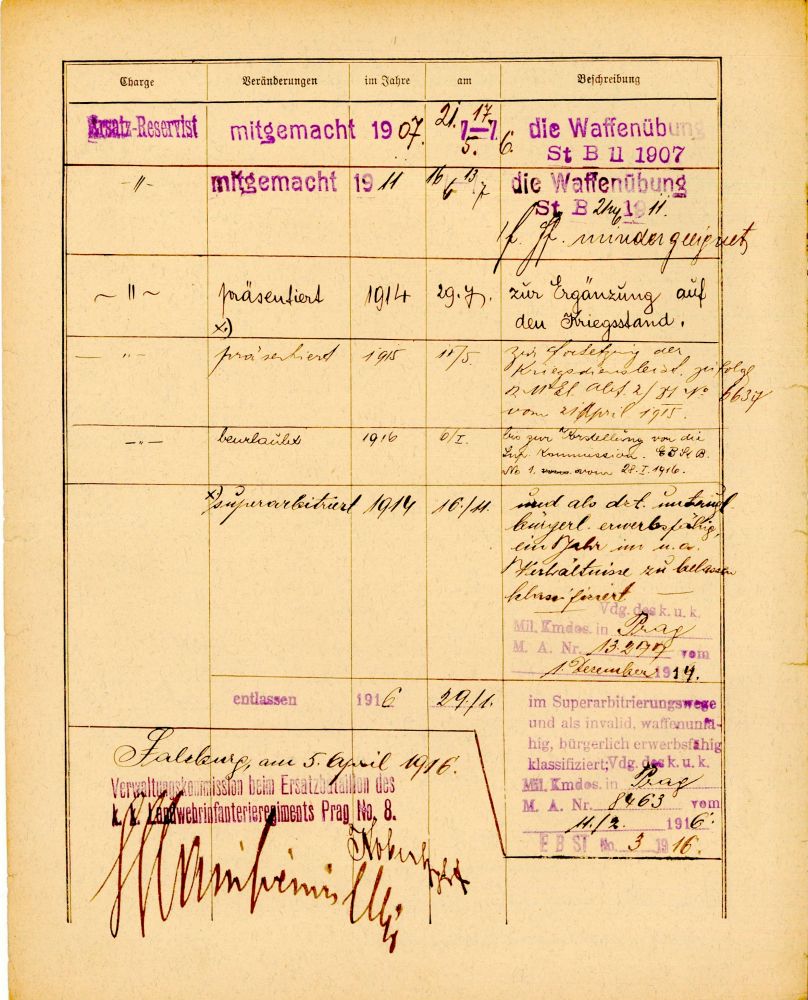 Charge Veränderungen im Jahre am Beschreibung
Ersatz-Reservist mitgemacht 1907. 21. 17. 7.—7. 5. 6. die Waffenübung
St B II 1907
-"- mitgemacht 1911 16/6 13/7 die Waffenübung
St B 1911.
mindergeeignet
~ " ~ präsentiert 1914 29.7. zur Ergänzung auf
x) den Kriegsstand.
— " — präsentiert 1915 11/5. zur Fortsetzung der
Kriegsdienstleist. zufolge
Abt. 2/ No 6637
vom 21 April 1915.
—"— beurlaubt 1916 6/I. bis zur Vorstellung von die
Sup. Kommission. E B St B.
No 1. vom 28.I.1916.
x) superarbitriert 1914 16./11. und als dzt. untaugl.
bürgerl. erwerbsfähig,
ein Jahr im n.a.
Verhältnisse zu belassen
klassifiziert —
Vdg. des k. u. k.
Mil. Kmdos. in Prag
M. A. Nr. vom
1. Dezember 1914.
entlassen 1916 29/1. im Superarbitrierungswege
und als invalid, waffenunfä-
hig, bürgerlich erwerbsfähig
klassifiziert; Vdg. des k. u. k.
Mil. Kmdos. in Prag
M. A. Nr. 8463 vom
11./2. 1916.
E B St No. 3 1916.
Salzburg, am 5. April 1916.
Verwaltungskommission beim Ersatzbataillon des
k. k. Landwehrinfanterieregiments Prag No. 8.